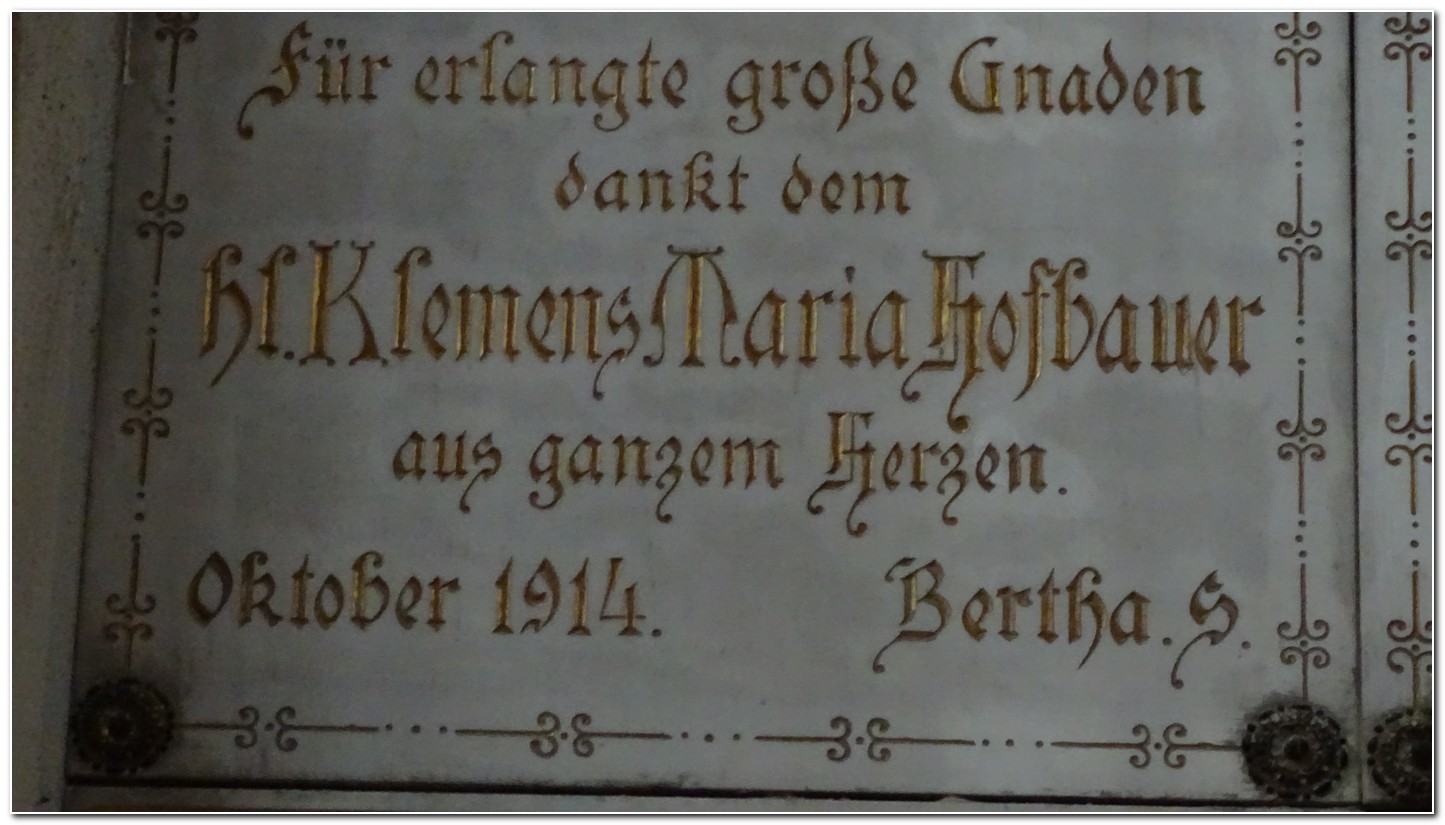 Für erlangte große Gnaden
dankt dem
hl. Klemens Maria Hofbauer
aus ganzem Herzen.
Oktober 1914. Bertha. S.